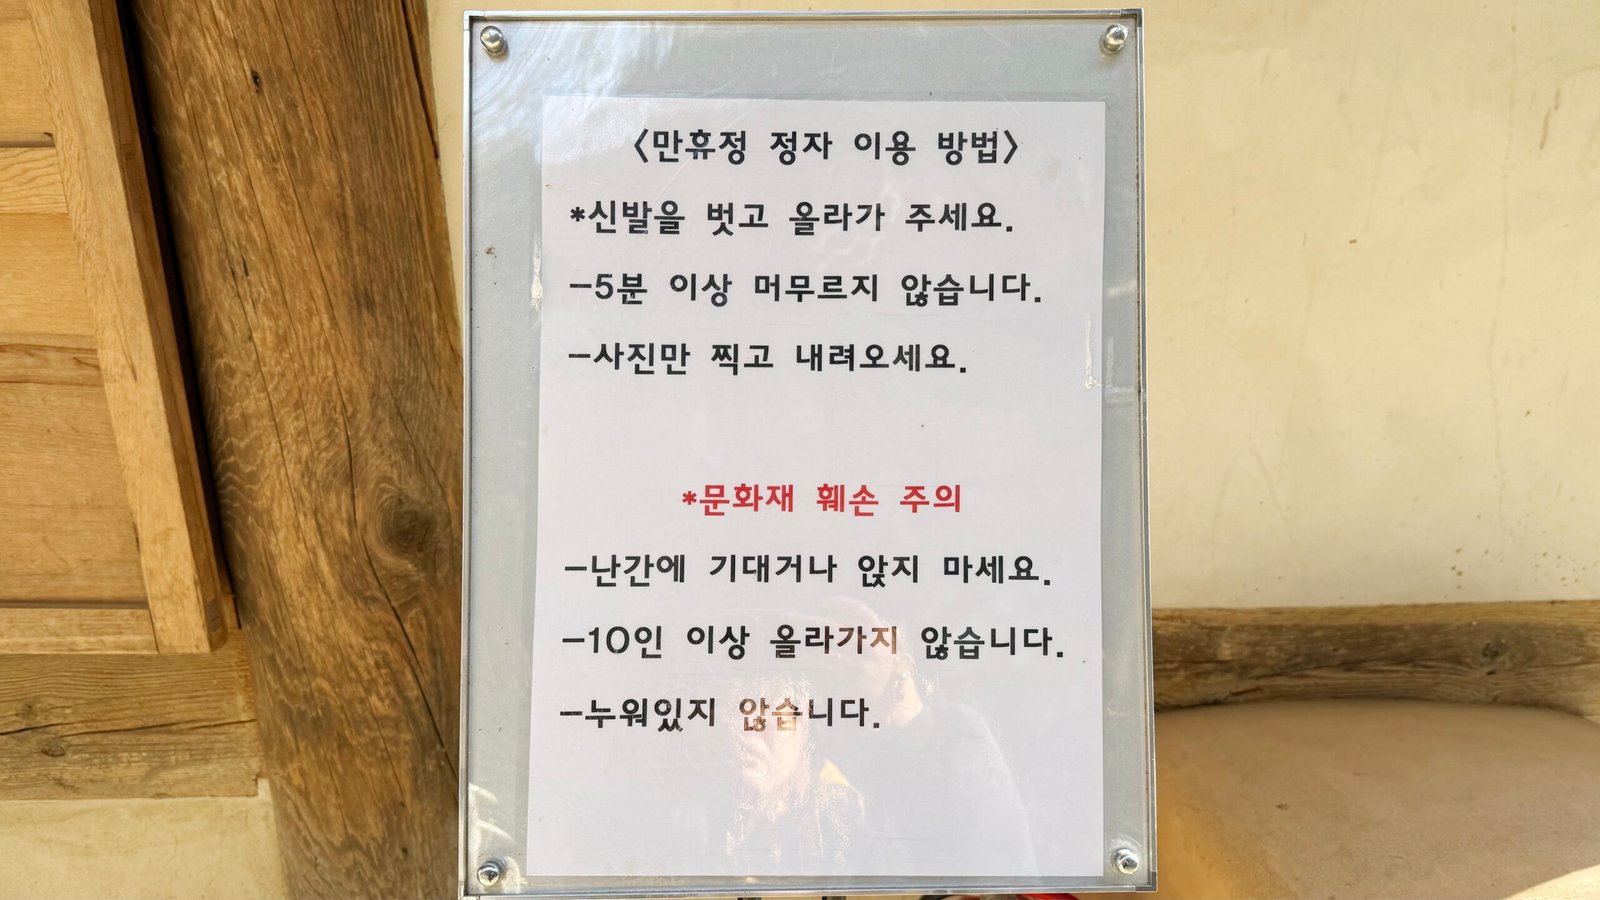 <만휴정 정자 이용 방법>
*신발을 벗고 올라가 주세요.
-5분 이상 머무르지 않습니다.
-사진만 찍고 내려오세요.
*문화재 훼손 주의
-난간에 기대거나 앉지 마세요.
-10인 이상 올라가지 않습니다.
-누워있지 않습니다.